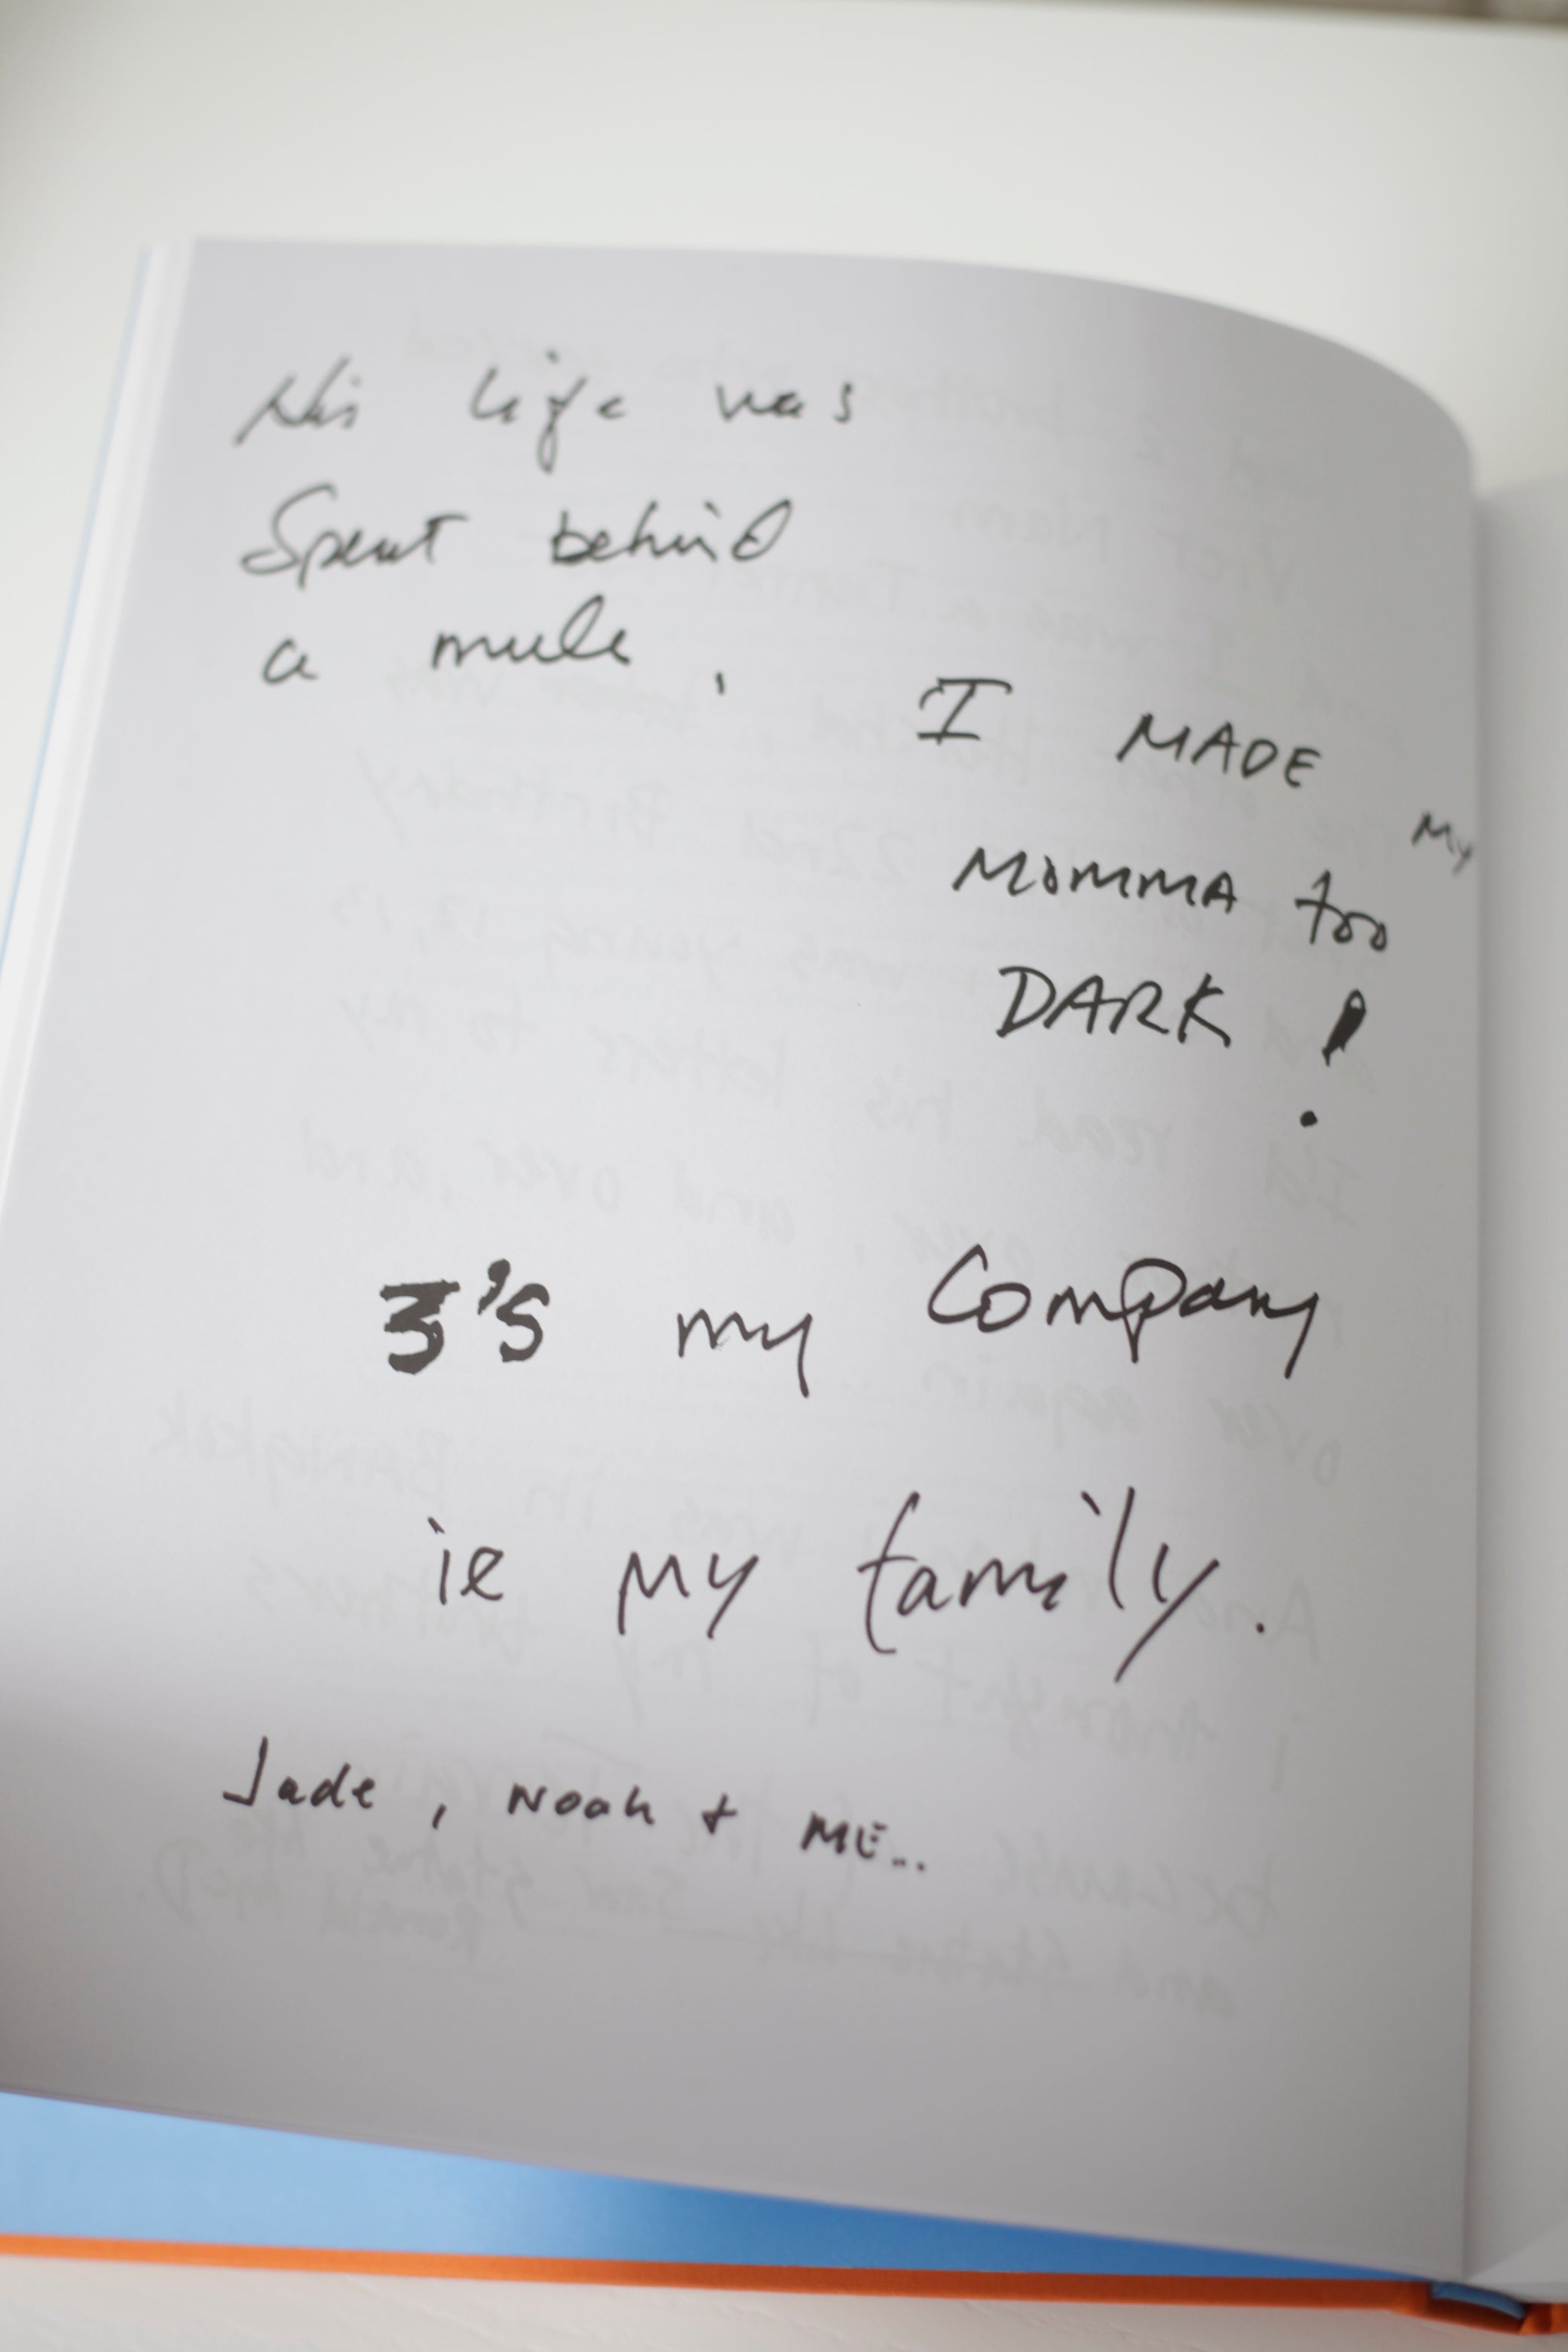 His life was
Spent behind
a mule.
I MADE
MY
MOMMA too
DARK!
3's my Company
ie my family.
Jade, Noah + ME...